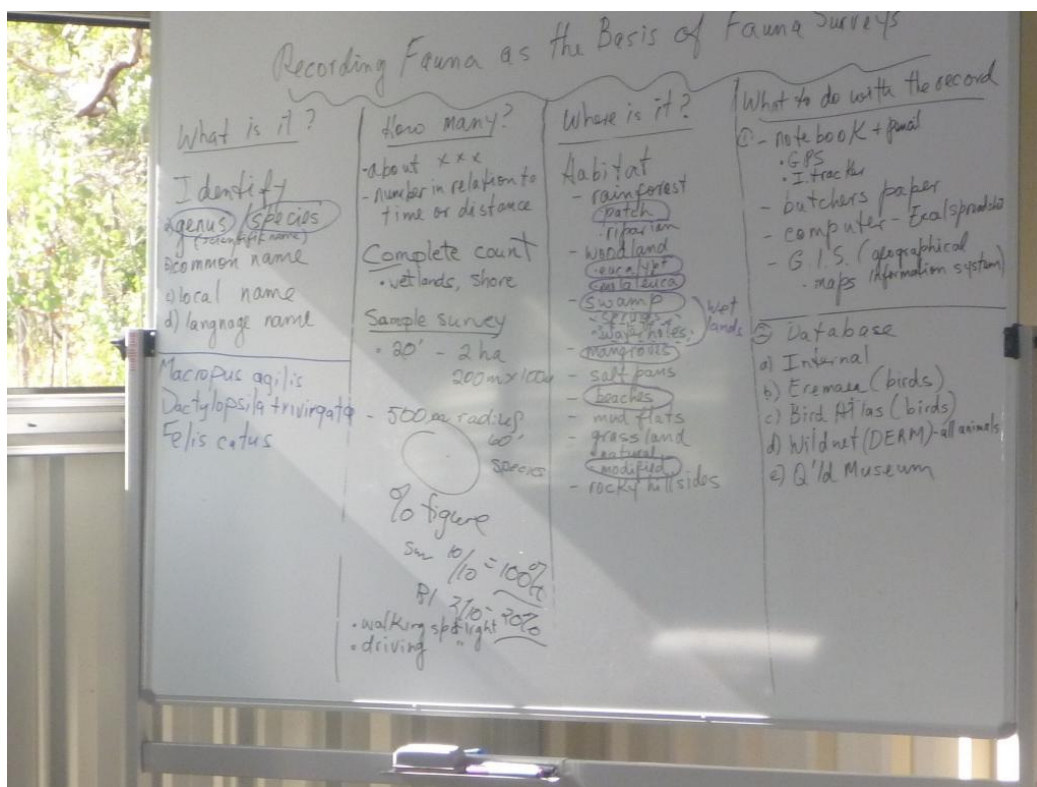 Recording Fauna as the Basis of Fauna Surveys
What is it?
Identify
a) genus / species
(scientific name)
b) common name
c) local name
d) language name
Macropus agilis
Dactylopsila trivirgata
Felis catus
How many?
- about x x x
- number in relation to
time or distance
Complete count
• wetlands, shore
Sample survey
• 20' - 2 ha
200m x 100m
- 500 m radius
60'
species
% figure
10/10 = 100%
2/10 = 20%
• walking spotlight
• driving "
Where is it?
Habitat
- rainforest
patch
riparian
- woodland
eucalypt
melaleuca
- swamp
• springs
• waterholes
wet
lands
- mangroves
- salt pans
- beaches
- mud flats
- grassland
natural
modified
- rocky hillsides
What to do with the record
① - notebook + pencil
• GPS
• I.tracker
- butchers paper
- computer - Excel spreadsheet
- G.I.S. (geographical
information system)
• maps
② Database
a) Internal
b) Eremaea (birds)
c) Bird Atlas (birds)
d) Wildnet (DERM) - all animals
e) Q'ld Museum